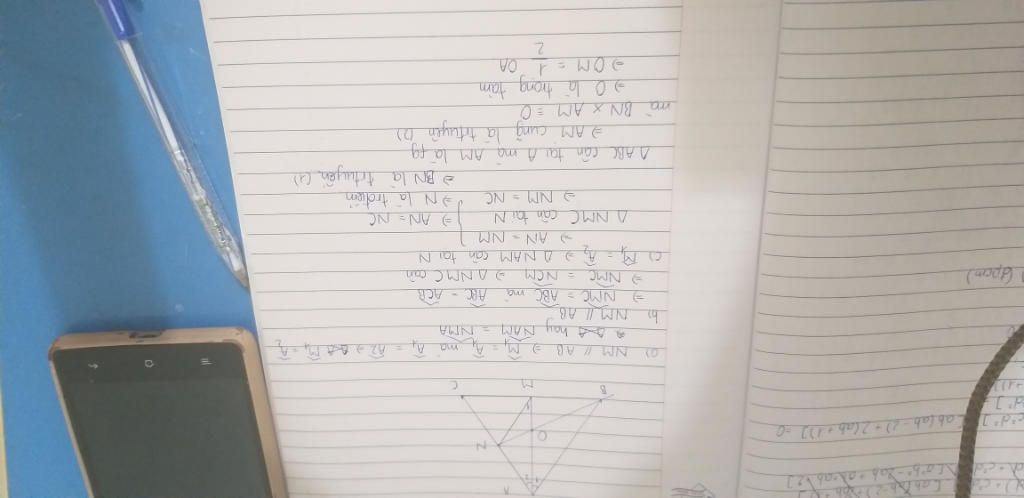 A
N
O
B
M
C
a) NM // AB ⇒ M̂₁ = Â₁ mà Â₁ = Â₂ ⇒ M̂₁ = Â₂
hay NAM = NMA
b) NM // AB
⇒ NMC = ABC mà ABC = ACB
⇒ NMC = NCM ⇒ Δ NMC cân
c) M̂₁ = Â₂ ⇒ Δ NAM cân tại N
⇒ AN = NM
Δ NMC cân tại N } ⇒ AN = NC
⇒ NM = NC ⇒ N là trđiểm
⇒ BN là trtuyến (1)
Δ ABC cân tại A mà AM là fg
⇒ AM cũng là trtuyến (2)
mà BN x AM ≡ O
⇒ O là trọng tâm
⇒ OM = 1/2 OA
(đpcm)
ab(ab-2) + 2(ab+1)] = 0